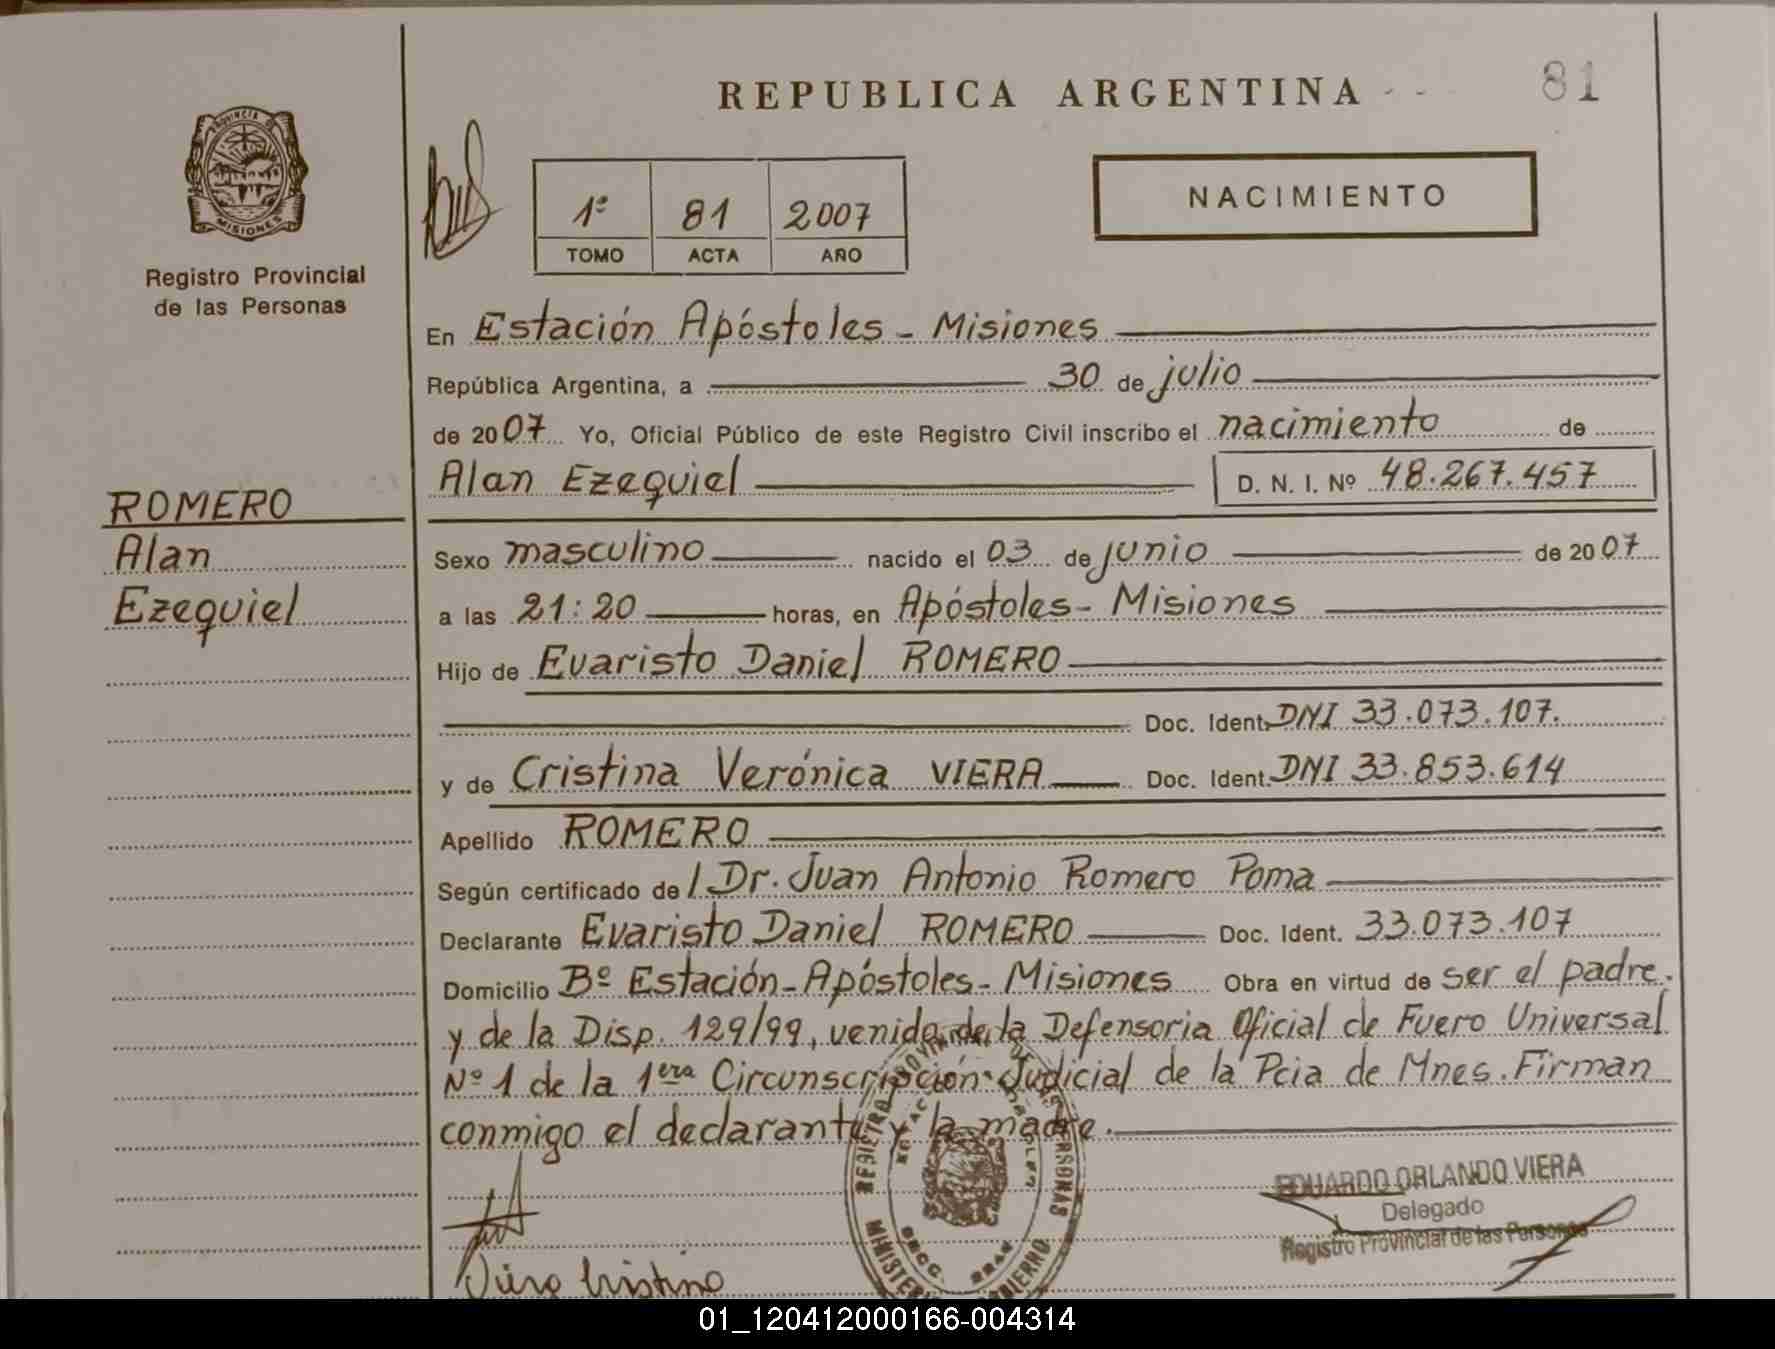 REPUBLICA ARGENTINA
81
PROVINCIA DE
MISIONES
Registro Provincial
de las Personas
1º 81 2007
TOMO ACTA AÑO
NACIMIENTO
En Estación Apóstoles - Misiones
República Argentina, a 30 de julio
de 2007 Yo, Oficial Público de este Registro Civil inscribo el nacimiento de
Alan Ezequiel D. N. I. Nº 48.267.457
ROMERO
Alan
Ezequiel
Sexo masculino nacido el 03 de junio de 2007
a las 21:20 horas, en Apóstoles - Misiones
Hijo de Evaristo Daniel ROMERO
Doc. Ident. DNI 33.073.107.
y de Cristina Verónica VIERA Doc. Ident. DNI 33.853.614
Apellido ROMERO
Según certificado de l Dr. Juan Antonio Romero Poma
Declarante Evaristo Daniel ROMERO Doc. Ident. 33.073.107
Domicilio Bº Estación - Apóstoles - Misiones Obra en virtud de ser el padre.
y de la Disp. 129/99, venida de la Defensoria Oficial de Fuero Universal
Nº 1 de la 1era Circunscripción Judicial de la Pcia de Mnes. Firman
conmigo el declarante y la madre.
EDUARDO ORLANDO VIERA
Delegado
Registro Provincial de las Personas
01_120412000166-004314